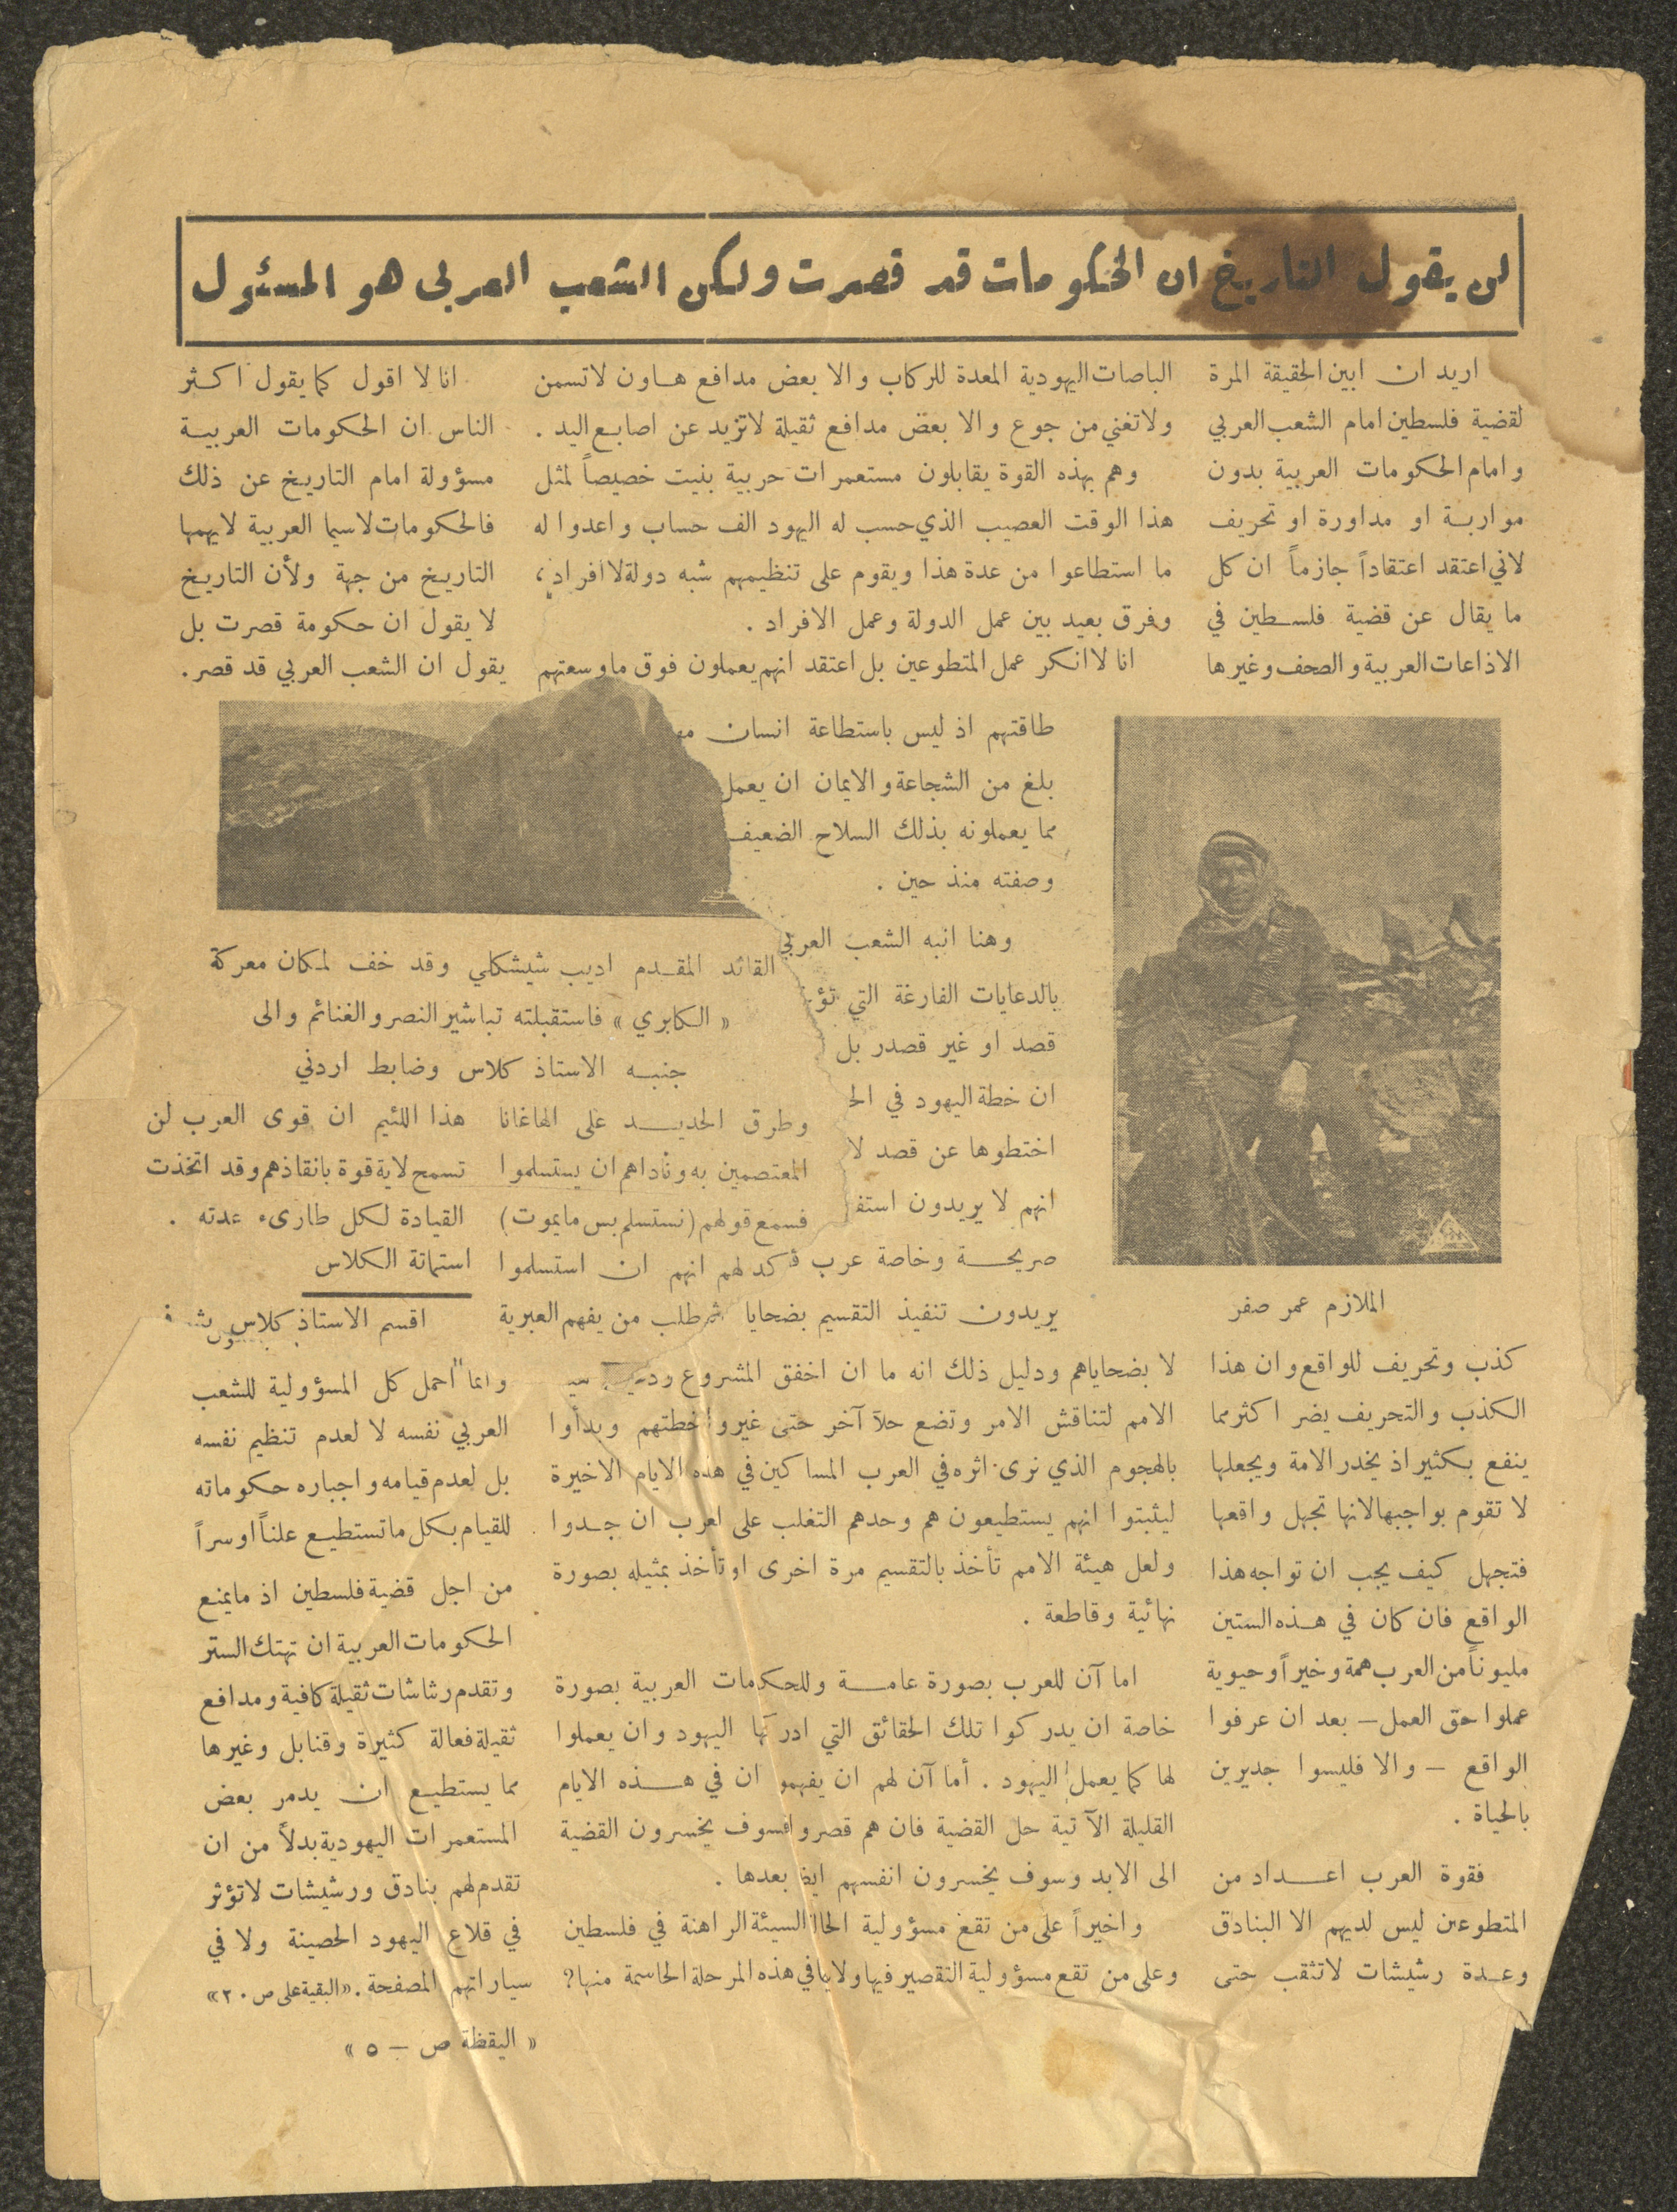 لن يقول التاريخ ان الحكومات قد قصرت ولكن الشعب العربي هو المسئول
اريد ان ابين الحقيقة المرة
لقضية فلسطين امام الشعب العربي
وامام الحكومات العربية بدون
مواربة او مداورة او تحريف
لاني اعتقد اعتقاداً جازماً ان كل
ما يقال عن قضية فلسطين في
الاذاعات العربية والصحف وغيرها
الملازم عمر صفر
كذب وتحريف للواقع وان هذا
الكذب والتحريف يضر اكثر مما
ينفع بكثير اذ يخدر الامة ويجعلها
لا تقوم بواجبها لانها تجهل واقعها
فتجهل كيف يجب ان تواجه هذا
الواقع فان كان في هذه الستين
مليوناً من العرب همة وخيراً وحيوية
عملوا حق العمل — بعد ان عرفوا
الواقع — والا فليسوا جديرين
بالحياة .
فقوة العرب اعداد من
المتطوعين ليس لديهم الا البنادق
وعدة رشيشات لا تثقب حتى
الباصات اليهودية المعدة للركاب والا بعض مدافع هاون لا تسمن
ولا تغني من جوع والا بعض مدافع ثقيلة لا تزيد عن اصابع اليد .
وهم بهذه القوة يقابلون مستعمرات حربية بنيت خصيصاً لمثل
هذا الوقت العصيب الذي حسب له اليهود الف حساب واعدوا له
ما استطاعوا من عدة هذا ويقوم على تنظيمهم شبه دولة لا افراد ،
وفرق بعيد بين عمل الدولة وعمل الافراد .
انا لا انكر عمل المتطوعين بل اعتقد انهم يعملون فوق ما وسعتهم
طاقتهم اذ ليس باستطاعة انسان
بلغ من الشجاعة والايمان ان يعمل
مما يعملونه بذلك السلاح الضعيف
وصفته منذ حين .
وهنا انبه الشعب العربي
بالدعايات الفارغة التي
قصد او غير قصدر بل
ان خطة اليهود في
اختطوها عن قصد لا
انهم لا يريدون
صريحة وخاصة عرب
يريدون تنفيذ التقسيم بضحايا
لا بضحاياهم ودليل ذلك انه ما ان اخفق المشروع
الامم لتناقش الامر وتضع حلاً آخر حتى غيروا خطتهم وبدأوا
بالهجوم الذي نرى اثره في العرب المساكين في هذه الايام الاخيرة
ليثبتوا انهم يستطيعون هم وحدهم التغلب على العرب ان جدوا
ولعل هيئة الامم تأخذ بالتقسيم مرة اخرى او تأخذ بمثيله بصورة
نهائية وقاطعة .
اما آن للعرب بصورة عامة وللحكومات العربية بصورة
خاصة ان يدركوا تلك الحقائق التي ادركها اليهود وان يعملوا
لها كما يعمل اليهود . أما آن لهم ان يفهموا ان في هذه الايام
القليلة الآتية حل القضية فان هم قصروا فسوف يخسرون القضية
الى الابد وسوف يخسرون انفسهم ايضا بعدها .
واخيراً على من تقع مسؤولية الحالة السيئة الراهنة في فلسطين
وعلى من تقع مسؤولية التقصير فيها ولا في هذه المرحلة الحاسمة منها ؟
انا لا اقول كما يقول اكثر
الناس ان الحكومات العربية
مسؤولة امام التاريخ عن ذلك
فالحكومات لاسيما العربية لا يهمها
التاريخ من جهة ولأن التاريخ
لا يقول ان حكومة قصرت بل
يقول ان الشعب العربي قد قصر .
القائد المقدم اديب شيشكلي وقد خف لمكان معركة
« الكابري » فاستقبلته تباشير النصر والغنائم والى
جنبه الاستاذ كلاس وضابط اردني
وطرق الحديد على الهاغانا
المعتصمين به وناداهم ان يستسلموا
فسمع قولهم (نستسلم بس ما يموت)
كد لهم انهم ان استسلموا
ثم طلب من يفهم العبرية
هذا اللئيم ان قوى العرب لن
تسمح لاية قوة بانقاذهم وقد اتخذت
القيادة لكل طارىء عدته .
استماتة الكلاس
اقسم الاستاذ كلاس
وانما احمل كل المسؤولية للشعب
العربي نفسه لا لعدم تنظيم نفسه
بل لعدم قيامه واجباره حكوماته
للقيام بكل ما تستطيع علناً او سراً
من اجل قضية فلسطين اذ ما يمنع
الحكومات العربية ان تهتك الستر
وتقدم رشاشات ثقيلة كافية ومدافع
ثقيلة فعالة كثيرة وقنابل وغيرها
مما يستطيع ان يدمر بعض
المستعمرات اليهودية بدلاً من ان
تقدم لهم بنادق ورشيشات لا تؤثر
في قلاع اليهود الحصينة ولا في
سياراتهم المصفحة . «البقية على ص ٢٠»
« اليقظة ص — ٥ »